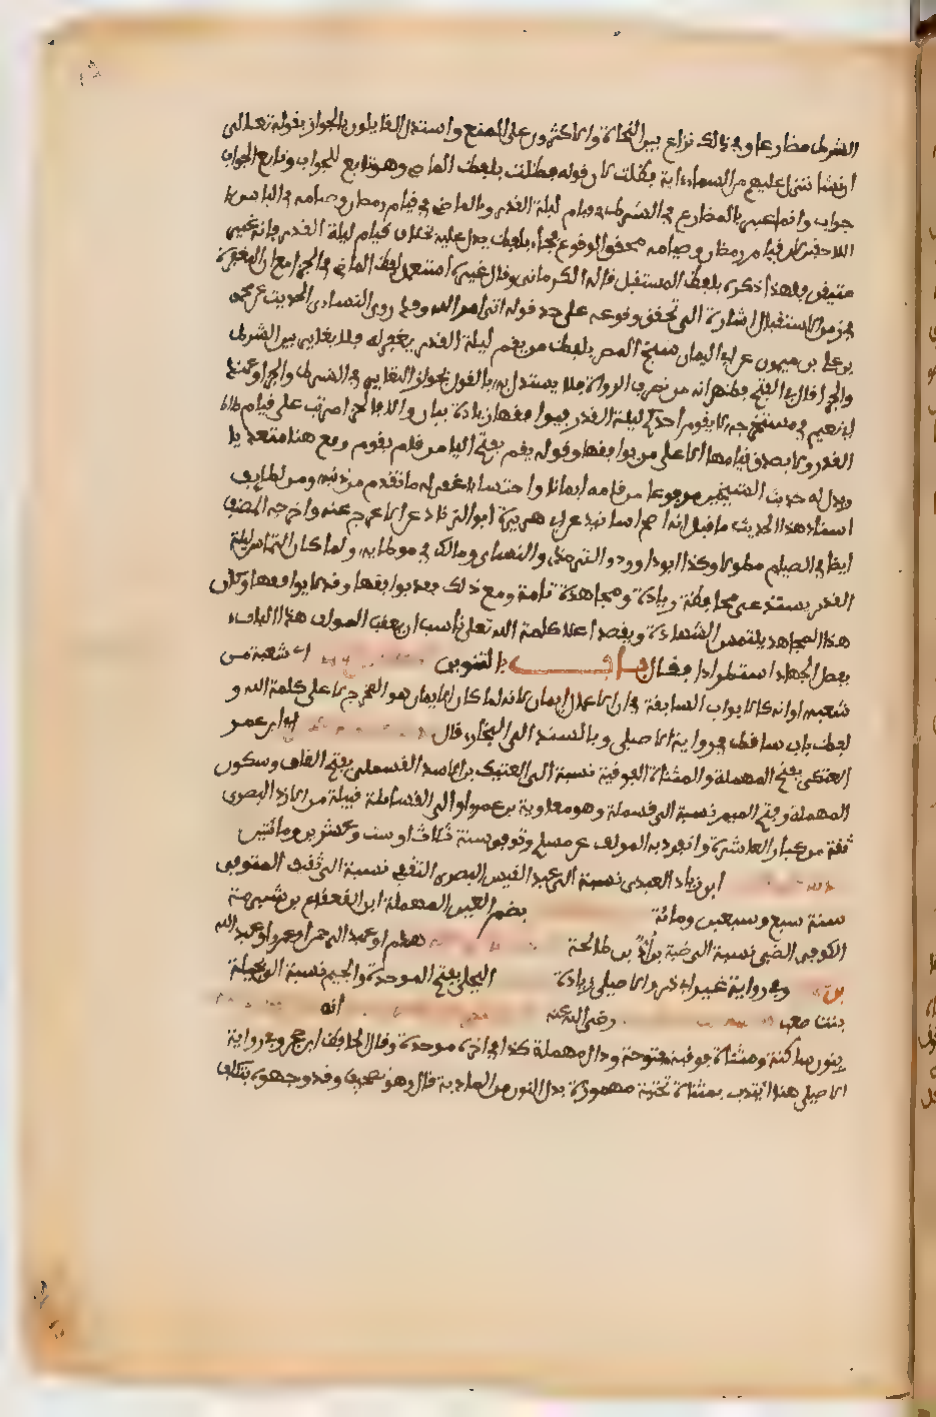 الشرط مضارعا وفي ذلك نزاع بين النحاة والاكثرون على المنع واستدل القايلون بالجواز بقوله تعالى
ان نشا ننزل عليهم من السماء اية فظلت لان قوله فظلت بلفظ الماضي وهو تابع للجواب وتابع الجواب
جواب وانما عبر بالمضارع في الشرط في قيام ليلة القدر وبالماضي في قيام رمضان وصيامه في البابين
اللاحقين لان قيام رمضان وصيامه محقق الوقوع فجاء بلفظ يدل عليه بخلاف قيام ليلة القدر فانه غير
متيقن فلهذا ذكره بلفظ المستقبل قاله الكرماني وقال غيره استعمل لفظ الماضي في الجزاء مع ان المغفرة
في زمن الاستقبال اشارة الى تحقق وقوعه على حد قوله اتى امر الله وقد روى النساءى الحديث عن محمد
بن علي بن ميمون عن ابي اليمان شيخ المص بلفظ من يقم ليلة القدر يغفر له فلا يغاير بين الشرط
والجزا قال في الفتح فظهر انه من تصرف الرواة فلا يستدل به بالقول بجواز التغاير في الشرط والجزا وعند
ابي نعيم في مستخرجه لا يقوم احدكم ليلة القدر فيوافقها زيادة بيان والا فالجزا مرتب على قيام ليلة
القدر ولا يصدق قيامها الا على من يوافقها وقوله يقم بفتح اليا من قام يقوم وقع هنا متعديا
ويدل له حديث الشيخين مرفوعا من قامه ايمانا واحتسابا غفر له ما تقدم من ذنبه ومن لطايف
اسناد هذا الحديث ما قيل انه اصح اسانيد عن ابي هريرة ابو الزناد عن الاعرج عنه واخرجه المصنف
ايضا في الصيام مطولا وكذا ابو داوود والترمذي والنسائى ومالك في موطايه ولما كان التماس ليلة
القدر يستدعي محافظة زيادة ومجاهدة تامة ومع ذلك فقد يوافقها وقد لا يوافقها وكان
هذا المجاهد يلتمس الشهادة ويقصد اعلا كلمة الله تعلى ناسب ان يعقب المولف هذا الباب
بفضل الجهاد استطرادا فقال باب بالتنوين اى شعبة من
شعبه او انه كالابواب السابقة في ان الاعمال ايمان لانه لما كان الايمان هو المخرج له على كلمة الله و
لفظ باب ساقط في رواية الاصيلي وبالسند الى البخاري قال ابن عمر
العتكى بفتح المهملة والمثناة الفوقية نسبة الى العتيك بن الاسد القسملي بفتح القاف وسكون
المهملة وفتح الميم نسبة الى قسملة وهو معاوية بن عمرو او الى القساملة قبيلة من الازد البصرى
ثقة من كبار العاشرة وانفرد به المولف عن مسلم وتوفي سنة ثلاث او ست وعشرين ومائتين
ابن زياد العبدى نسبة الى عبد القيس البصرى الثقفي نسبة الى ثقيف المتوفى
سنة سبع وسبعين ومائة بضم العين المهملة ابن القعقاع بن شبرمة
الكوفي الضبى نسبة الى ضبة بن اد بن طابخة هرم او عبد الرحمن او عمرو او عبد الله
بن وفي رواية غير ابي ذر والاصيلي زيادة البجلي بفتح الموحدة والجيم نسبة الى بجيلة
بنت صعب رضي الله عنه انه
بنون ساكنة ومثناة فوقية مفتوحة ودال مهملة كذا في اخره موحدة وقال الحافظ ابن حجر وفي رواية
الاصيلي هنا ائتدب بمثناة تحتية مهموزة بدل النون من المادبة قال وهو تصحيف وقد وجهوه بتكلف